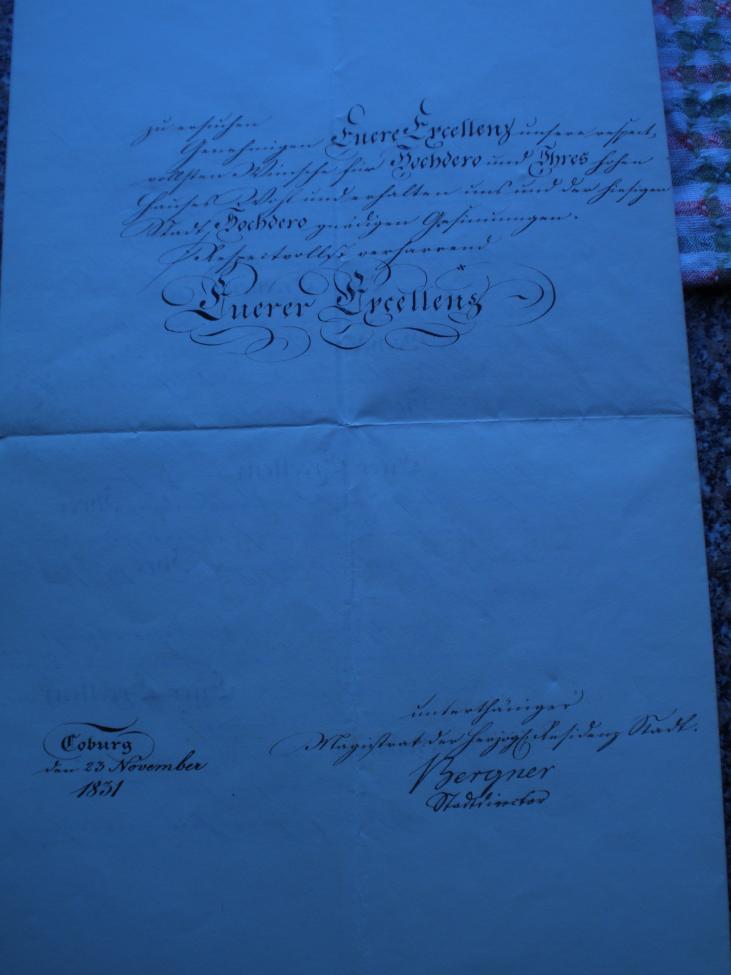 zu ersuchen
Genehmigen Euere Excellenz unsere respect-
vollsten Wünsche für Hochdero und Ihres hohen
Hauses Wohl und erhalten uns und der hiesigen
Stadt, Hochdero gnädigen Gesinnungen.
Respectvollst verharrend
Euerer Excellenz
unterthäniger
Magistrat der Herzogl. Residenz Stadt.
Bergner
Stadtdirector
Coburg
den 23 November
1831